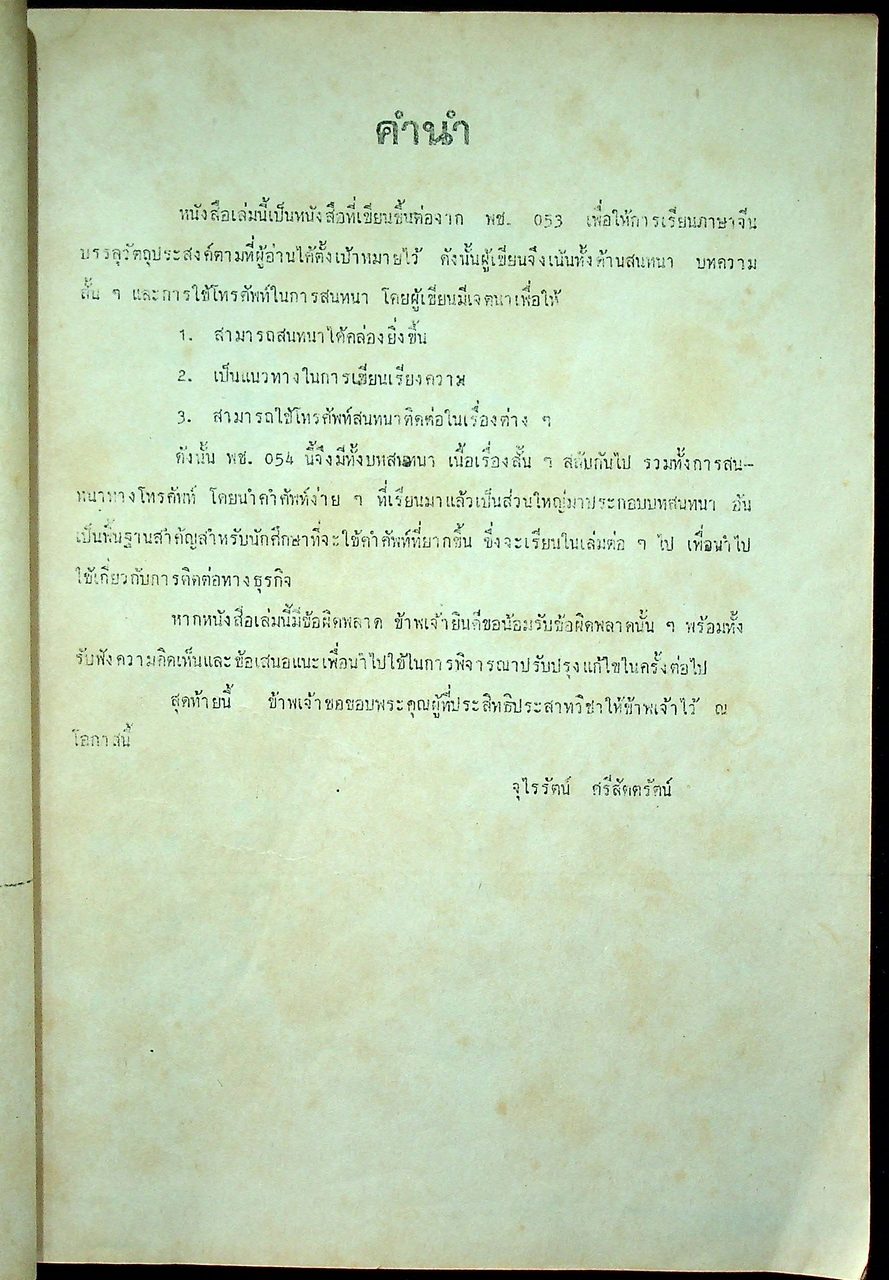 คำนำ
หนังสือเล่มนี้เป็นหนังสือที่เขียนขึ้นต่อจาก พช. 053 เพื่อให้การเรียนภาษาจีน
บรรลุวัตถุประสงค์ตามที่ผู้อ่านได้ตั้งเป้าหมายไว้ ดังนั้นผู้เขียนจึงเน้นทั้งด้านสนทนา บทความ
สั้น ๆ และการใช้โทรศัพท์ในการสนทนา โดยผู้เขียนมีเจตนาเพื่อให้
1. สามารถสนทนาได้คล่องยิ่งขึ้น
2. เป็นแนวทางในการเขียนเรียงความ
3. สามารถใช้โทรศัพท์สนทนาติดต่อในเรื่องต่าง ๆ
ดังนั้น พช. 054 นี้จึงมีทั้งบทสนทนา เนื้อเรื่องสั้น ๆ สลับกันไป รวมทั้งการสน-
ทนาทางโทรศัพท์ โดยนำคำศัพท์ง่าย ๆ ที่เรียนมาแล้วเป็นส่วนใหญ่มาประกอบบทสนทนา อัน
เป็นพื้นฐานสำคัญสำหรับนักศึกษาที่จะใช้คำศัพท์ที่ยากขึ้น ซึ่งจะเรียนในเล่มต่อ ๆ ไป เพื่อนำไป
ใช้เกี่ยวกับการติดต่อทางธุรกิจ
หากหนังสือเล่มนี้มีข้อผิดพลาด ข้าพเจ้ายินดีขอน้อมรับข้อผิดพลาดนั้น ๆ พร้อมทั้ง
รับฟังความคิดเห็นและข้อเสนอแนะเพื่อนำไปใช้ในการพิจารณาปรับปรุงแก้ไขในครั้งต่อไป
สุดท้ายนี้ ข้าพเจ้าขอขอบพระคุณผู้ที่ประสิทธิประสาทวิชาให้ข้าพเจ้าไว้ ณ
โอกาสนี้
จุไรรัตน์ ศรีสัตตรัตน์